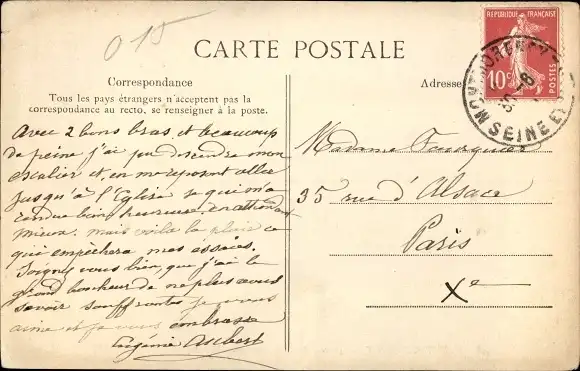 015
CARTE POSTALE
Correspondance
Tous les pays étrangers n'acceptent pas la
correspondance au recto, se renseigner à la poste.
Adresse
REPUBLIQUE FRANÇAISE
10c
POSTES
MONTMORENCY
SEINE ET
Avec 2 bons bras et beaucoup
de peine j'ai pu descendre mon
escalier et, en me reposant aller
jusqu'à l'Eglise ce qui m'a
rendue bien heureuse. en attendant
mieux. mais voilà la pluie ce
qui empêchera mes essaies.
Soignez vous bien, que j'ai le
grand bonheur de ne plus vous
savoir souffrante je vous
aime et je vous embrasse
Eugénie Aubert
Madame
35 rue d'Alsace
Paris
Xe